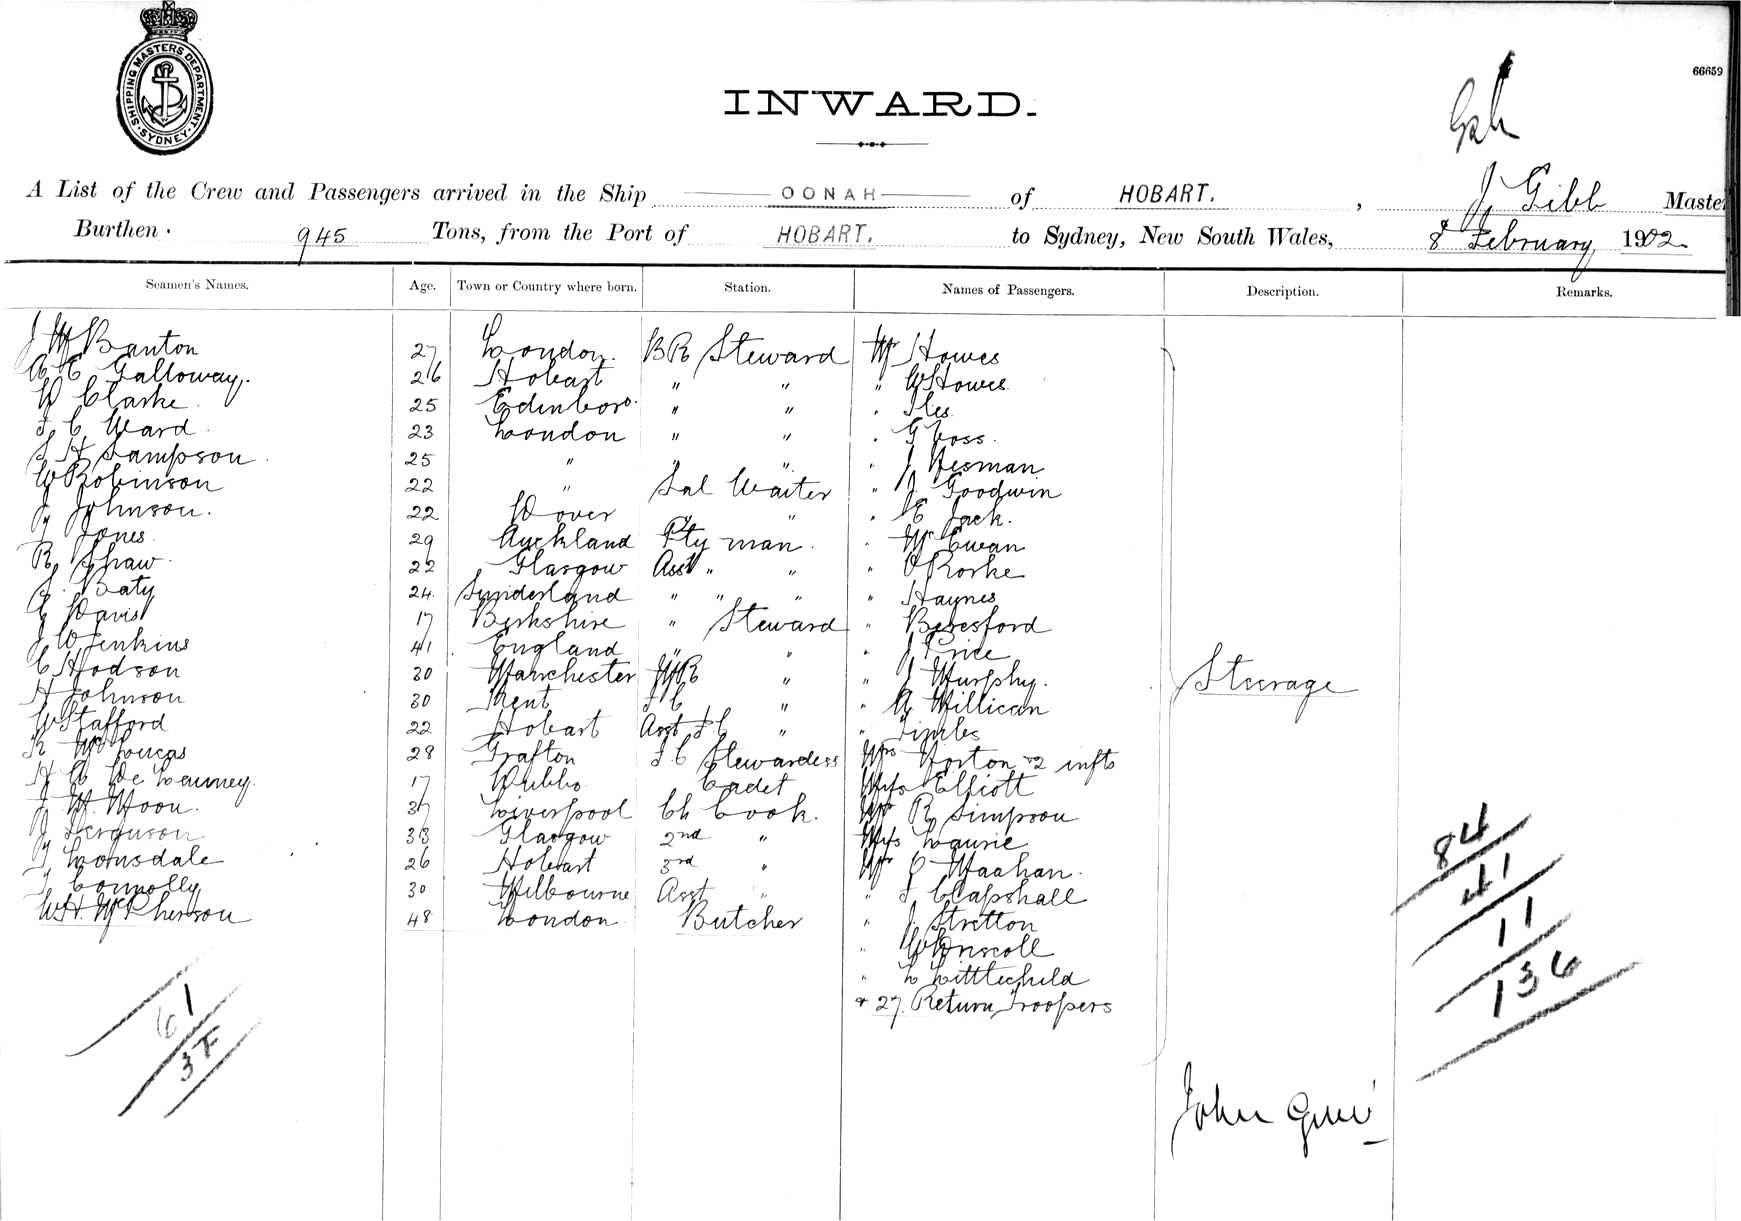 SHIPPING MASTERS DEPARTMENT. SYDNEY
66659
INWARD.
A List of the Crew and Passengers arrived in the Ship OONAH of HOBART. , J Gibb Master
Burthen 945 Tons, from the Port of HOBART. to Sydney, New South Wales, 8 February, 1902
Seamen's Names. Age. Town or Country where born. Station. Names of Passengers. Description. Remarks.
J M Banton 27 London. BR Steward Mr Howes
A E Galloway. 26 Hobart " " " W Howes
W Clarke. 25 Edinboro. " " " Iles
F C Ward 23 London " " " G Voss.
S H Sampson 25 " " " " J Hesman
W Robinson 22 " Sal Waiter " J Goodwin
J Johnson. 22 Dover " " " E Jack.
J Jones 29 Auckland Pty man. " McEwan
R Shaw 22 Glasgow Asst " " " O'Rorke
J Baty 24 Sunderland " " " " Haynes
E Davis 17 Berkshire " Steward " Beresford
J W Jenkins 41 England " " " J Price
C Hodson 30 Manchester " " J Murphy.
H Johnson 30 Kent F C " " A Millican
W Stafford 22 Hobart Asst F C " "
28 Grafton F C Stewardess Mrs Horton & 2 infts
17 Dubbo Cadet Miss Elliott
J H Moon. 37 Liverpool Ch Cook. Mr R Simpson
J Ferguson 33 Glasgow 2nd " Miss Laurie
T Lonsdale 26 Hobart 3rd " Mr C Maahan.
T Connolly 30 Melbourne Asst " " F Clapshall
W H McPherson 48 London Butcher " J Stretton
" W Driscoll
" L Littlechild
& 27 Return Troopers
Steerage
84
41
11
136
61
37
John